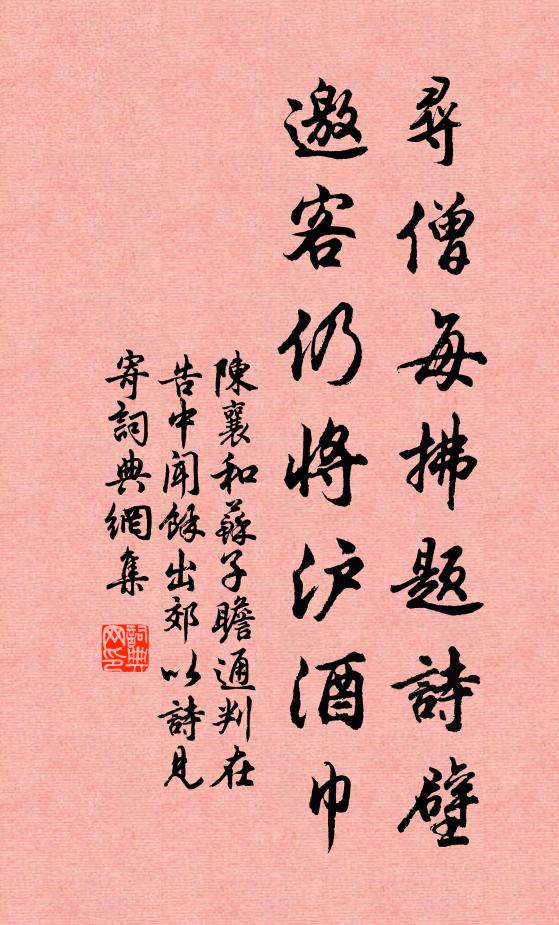 尋僧每拂題詩壁
邀客仍將沪酒巾
陳襄和蘇子瞻通判在
告中聞餘出郊以詩見
寄詞典網集
詞典
网印